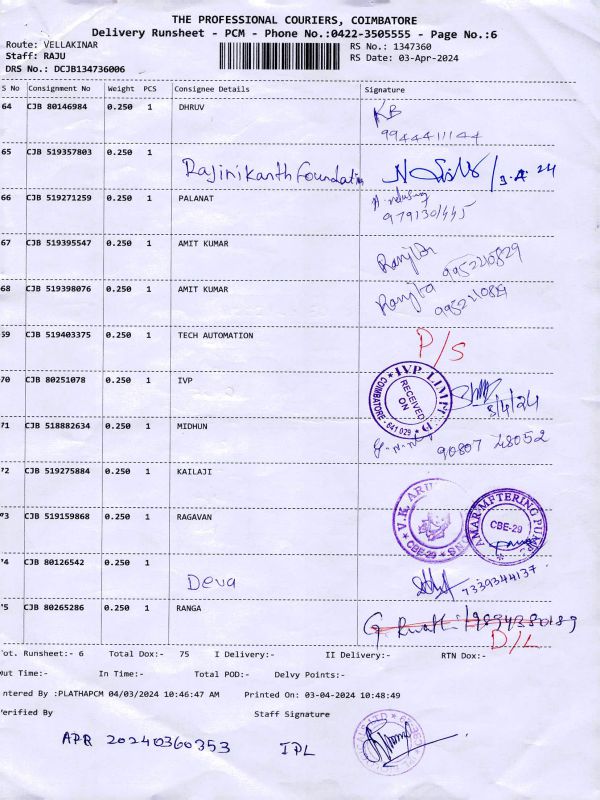 THE PROFESSIONAL COURIERS, COIMBATORE
Delivery Runsheet - PCM - Phone No.:0422-3505555 - Page No.:6
Route: VELLAKINAR
Staff: RAJU
DRS No.: DCJB134736006
RS No.: 1347360
RS Date: 03-Apr-2024
S No Consignment No Weight PCS Consignee Details Signature
64 CJB 80146984 0.250 1 DHRUV KB
9944411144
65 CJB 519357803 0.250 1 Rajinikanth Foundation /3.4.24
66 CJB 519271259 0.250 1 PALANAT
9791301445
67 CJB 519395547 0.250 1 AMIT KUMAR Ranjita 9952210829
68 CJB 519398076 0.250 1 AMIT KUMAR Ranjita 9952210829
59 CJB 519403375 0.250 1 TECH AUTOMATION P/S
70 CJB 80251078 0.250 1 IVP IVP LIMITED RECEIVED ON COIMBATORE - 641 029 3/4/24
71 CJB 518882634 0.250 1 MIDHUN 90807 48052
72 CJB 519275884 0.250 1 KAILAJI
73 CJB 519159868 0.250 1 RAGAVAN V.K. CBE-29 AMAR METERING PUMPS CBE-29
74 CJB 80126542 0.250 1 Deva 7339344137
75 CJB 80265286 0.250 1 RANGA 9894380189
D/L
Tot. Runsheet:- 6 Total Dox:- 75 I Delivery:- II Delivery:- RTN Dox:-
Out Time:- In Time:- Total POD:- Delvy Points:-
ntered By :PLATHAPCM 04/03/2024 10:46:47 AM Printed On: 03-04-2024 10:48:49
Verified By Staff Signature
APR 20240360353 IPL